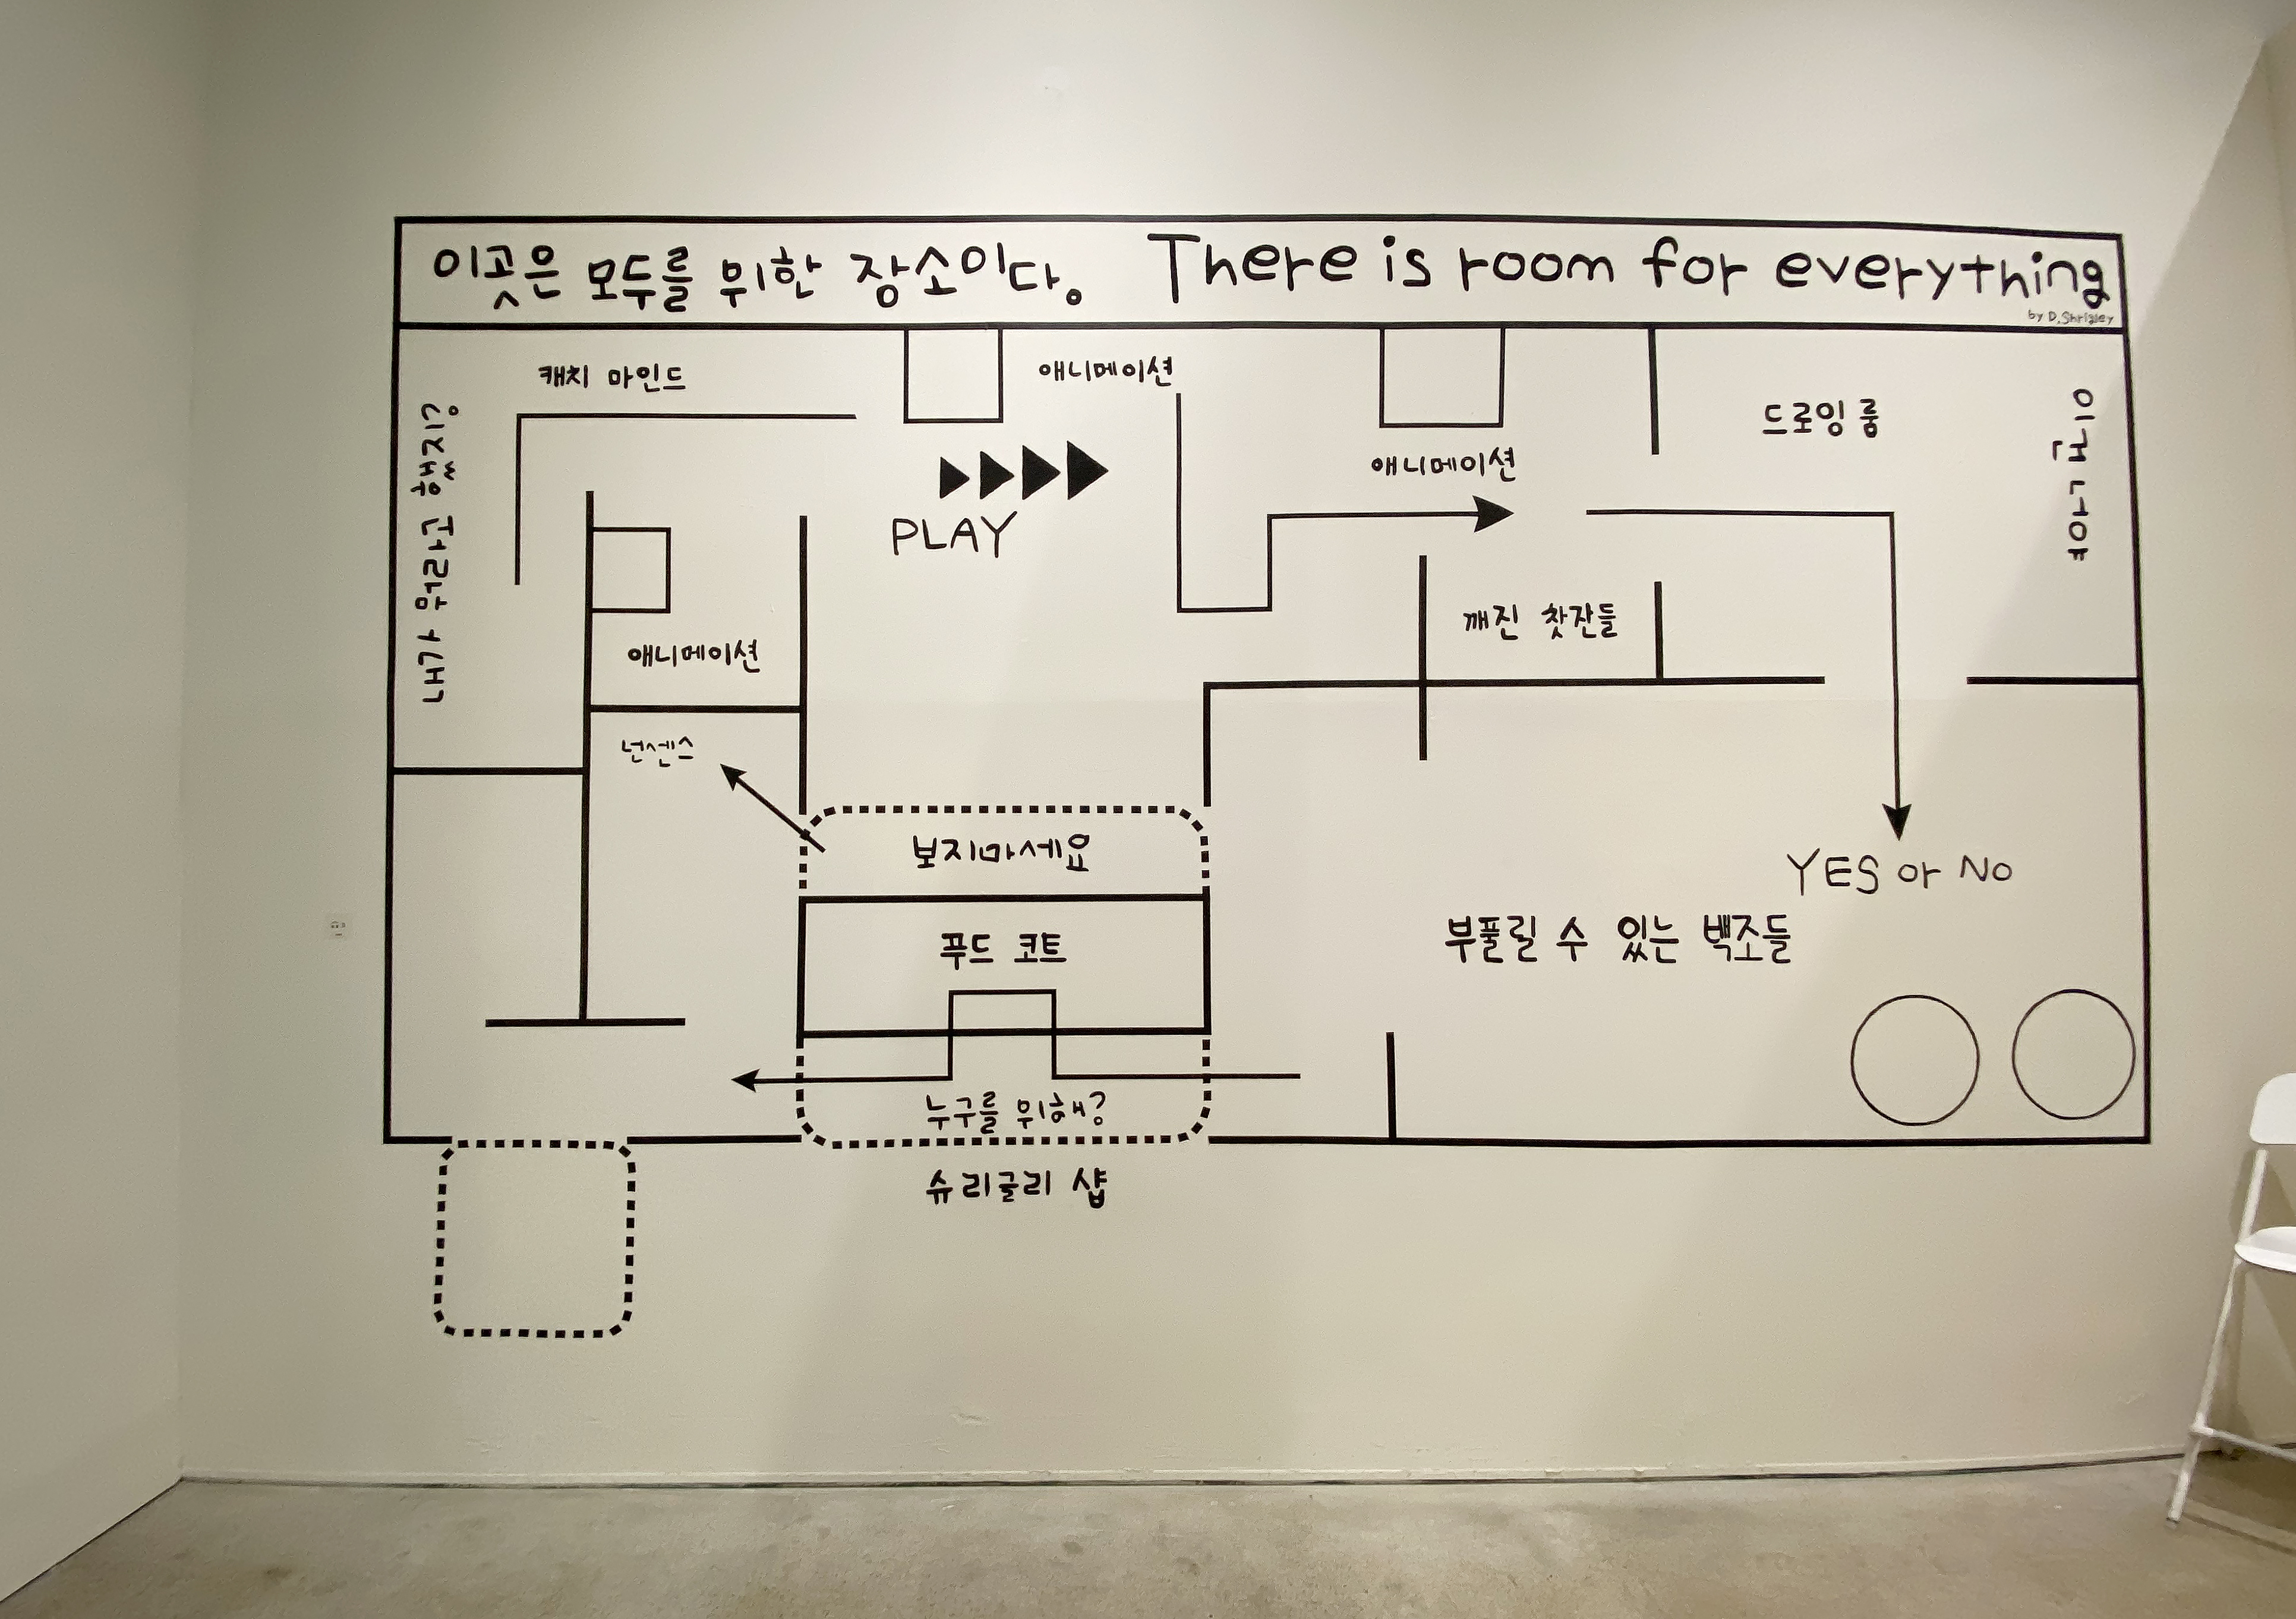 이곳은 모두를 위한 장소이다.
There is room for everything
by D. Shrigley
캐치 마인드
애니메이션
내가 뭐라고 했지?
PLAY
애니메이션
드로잉 룸
이건 아냐
깨진 찻잔들
애니메이션
넌센스
보지마세요
푸드 코트
YES or No
부풀릴 수 있는 백조들
누구를 위해?
슈리글리 샵